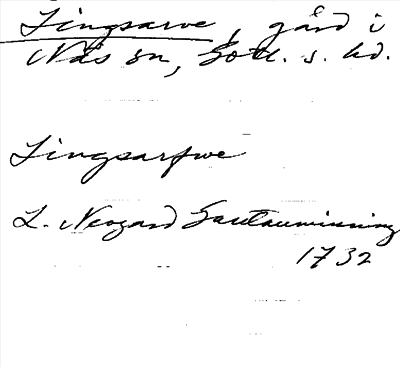 Lingsarve, gård i
Näs sn, Gotl. s. hd.
Lingsarfwe
L. Neogard Gautauminning
1732